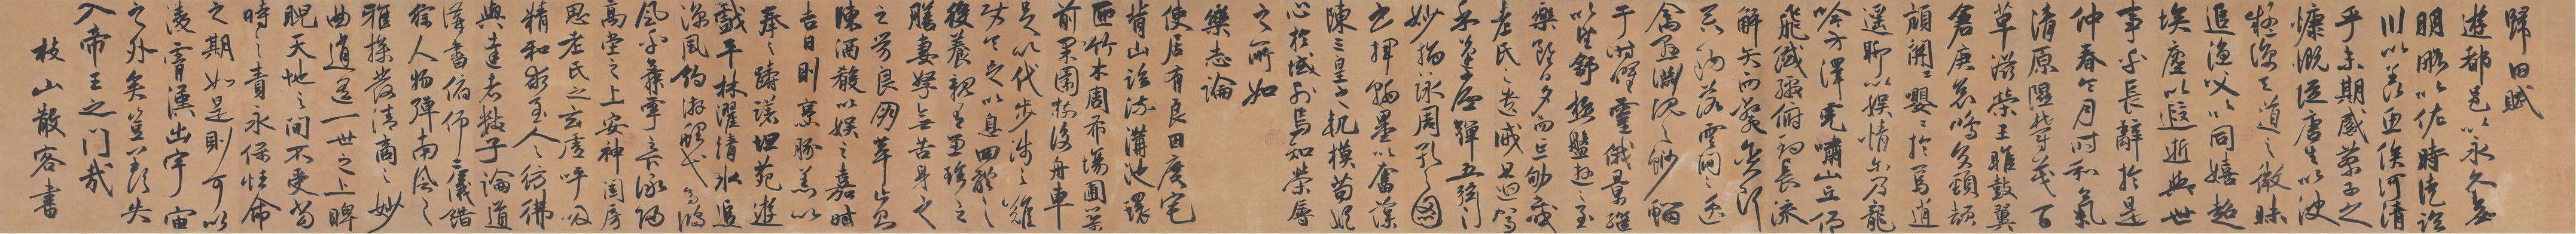 歸田賦
遊都邑以永久無
明略以佐時徒臨
川以羨魚俟河清
乎未期感蔡子之
慷慨從唐生以決
疑諒天道之微昧
追漁父以同嬉超
埃塵以遐逝與世
事乎長辭於是
仲春令月時和氣
清原隰鬱茂百
草滋榮王雎鼓翼
倉庚哀鳴交頸頡
頏關々嚶々於焉逍
遙聊以娛情爾乃龍
吟方澤虎嘯山丘仰
飛纖繳俯釣長流
觸矢而斃貪餌
吞鉤落雲間之逸
禽懸淵沉之魦鰡
于時曜靈俄景繼
以望舒極盤遊之至
樂雖日夕而忘劬感
老氏之遺誡且迴駕
乎蓬廬彈五弦之
妙指詠周孔之圖
書揮翰墨以奮藻
陳三皇之軌模苟縱
心於域外焉知榮辱
之所如
樂志論
使居有良田廣宅
背山臨流溝池環
匝竹木周布場圃築
前果園樹後舟車
足以代步涉之難
使令足以息四體之
役養親有兼珍之
膳妻孥無苦身之
勞良朋萃止則
陳酒餚以娛之嘉時
吉日則烹豚羔以
奉之躊躇畦苑遊
戲平林濯清水追
涼風釣游鯉弋高鴻
風乎舞雩之下詠歸
高堂之上安神閨房
思老氏之玄虛呼吸
精和求至人之彷彿
與達者數子論道
講書俯仰二儀錯
綜人物彈南風之
雅操發清商之妙
曲逍遙一世之上睥
睨天地之間不受當
時之責永保性命
之期如是則可以
凌霄漢出宇宙
之外矣豈羨夫
入帝王之門哉
枝山散客書